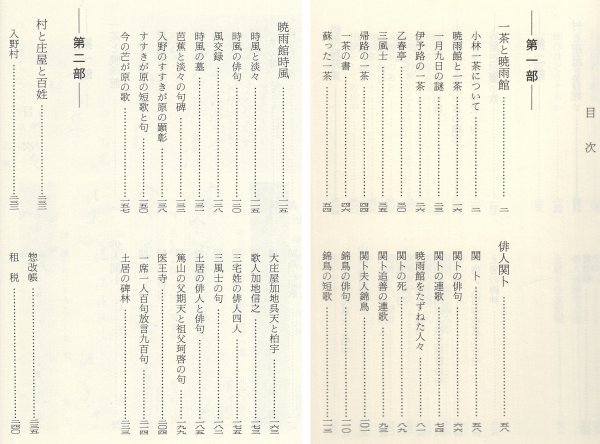 目次
第一部
一茶と暁雨館……二
小林一茶について……二
暁雨館と一茶……一四
一月九日の謎……一六
伊予路の一茶……二六
乙春亭……三〇
三風士……三五
帰路の一茶……四四
一茶の書……四六
蘇った一茶……五四
俳人関卜……五八
関卜……五八
関卜の俳句……六六
関卜の連歌……七四
暁雨館をたずねた人々……八一
関卜の死……八九
関卜追善の連歌……九三
関卜夫人錦鳥……一〇一
錦鳥の俳句……一一〇
錦鳥の短歌……一一三
暁雨館時風……一一五
時風と淡々……一一五
時風の俳句……一二〇
風交録……一二八
時風の墓……一三一
芭蕉と淡々の句碑……一三三
入野のすすきが原の顕彰……一三八
すすきが原の短歌と句……一五〇
今の芒が原の歌……一五七
大庄屋加地呉天と柏宇……一六三
歌人加地信之……一七三
三宅姓の俳人四人……一七五
三風士の句……一八二
土居の俳人と俳句……一八五
篤山の父期天と祖父珂啓の句……一九九
医王寺……二〇四
一席一人百句放言九百句……二一四
土居の碑林……二二三
第二部
村と庄屋と百姓……二三三
入野村……二三三
惣改帳……二三五
租税……二四〇